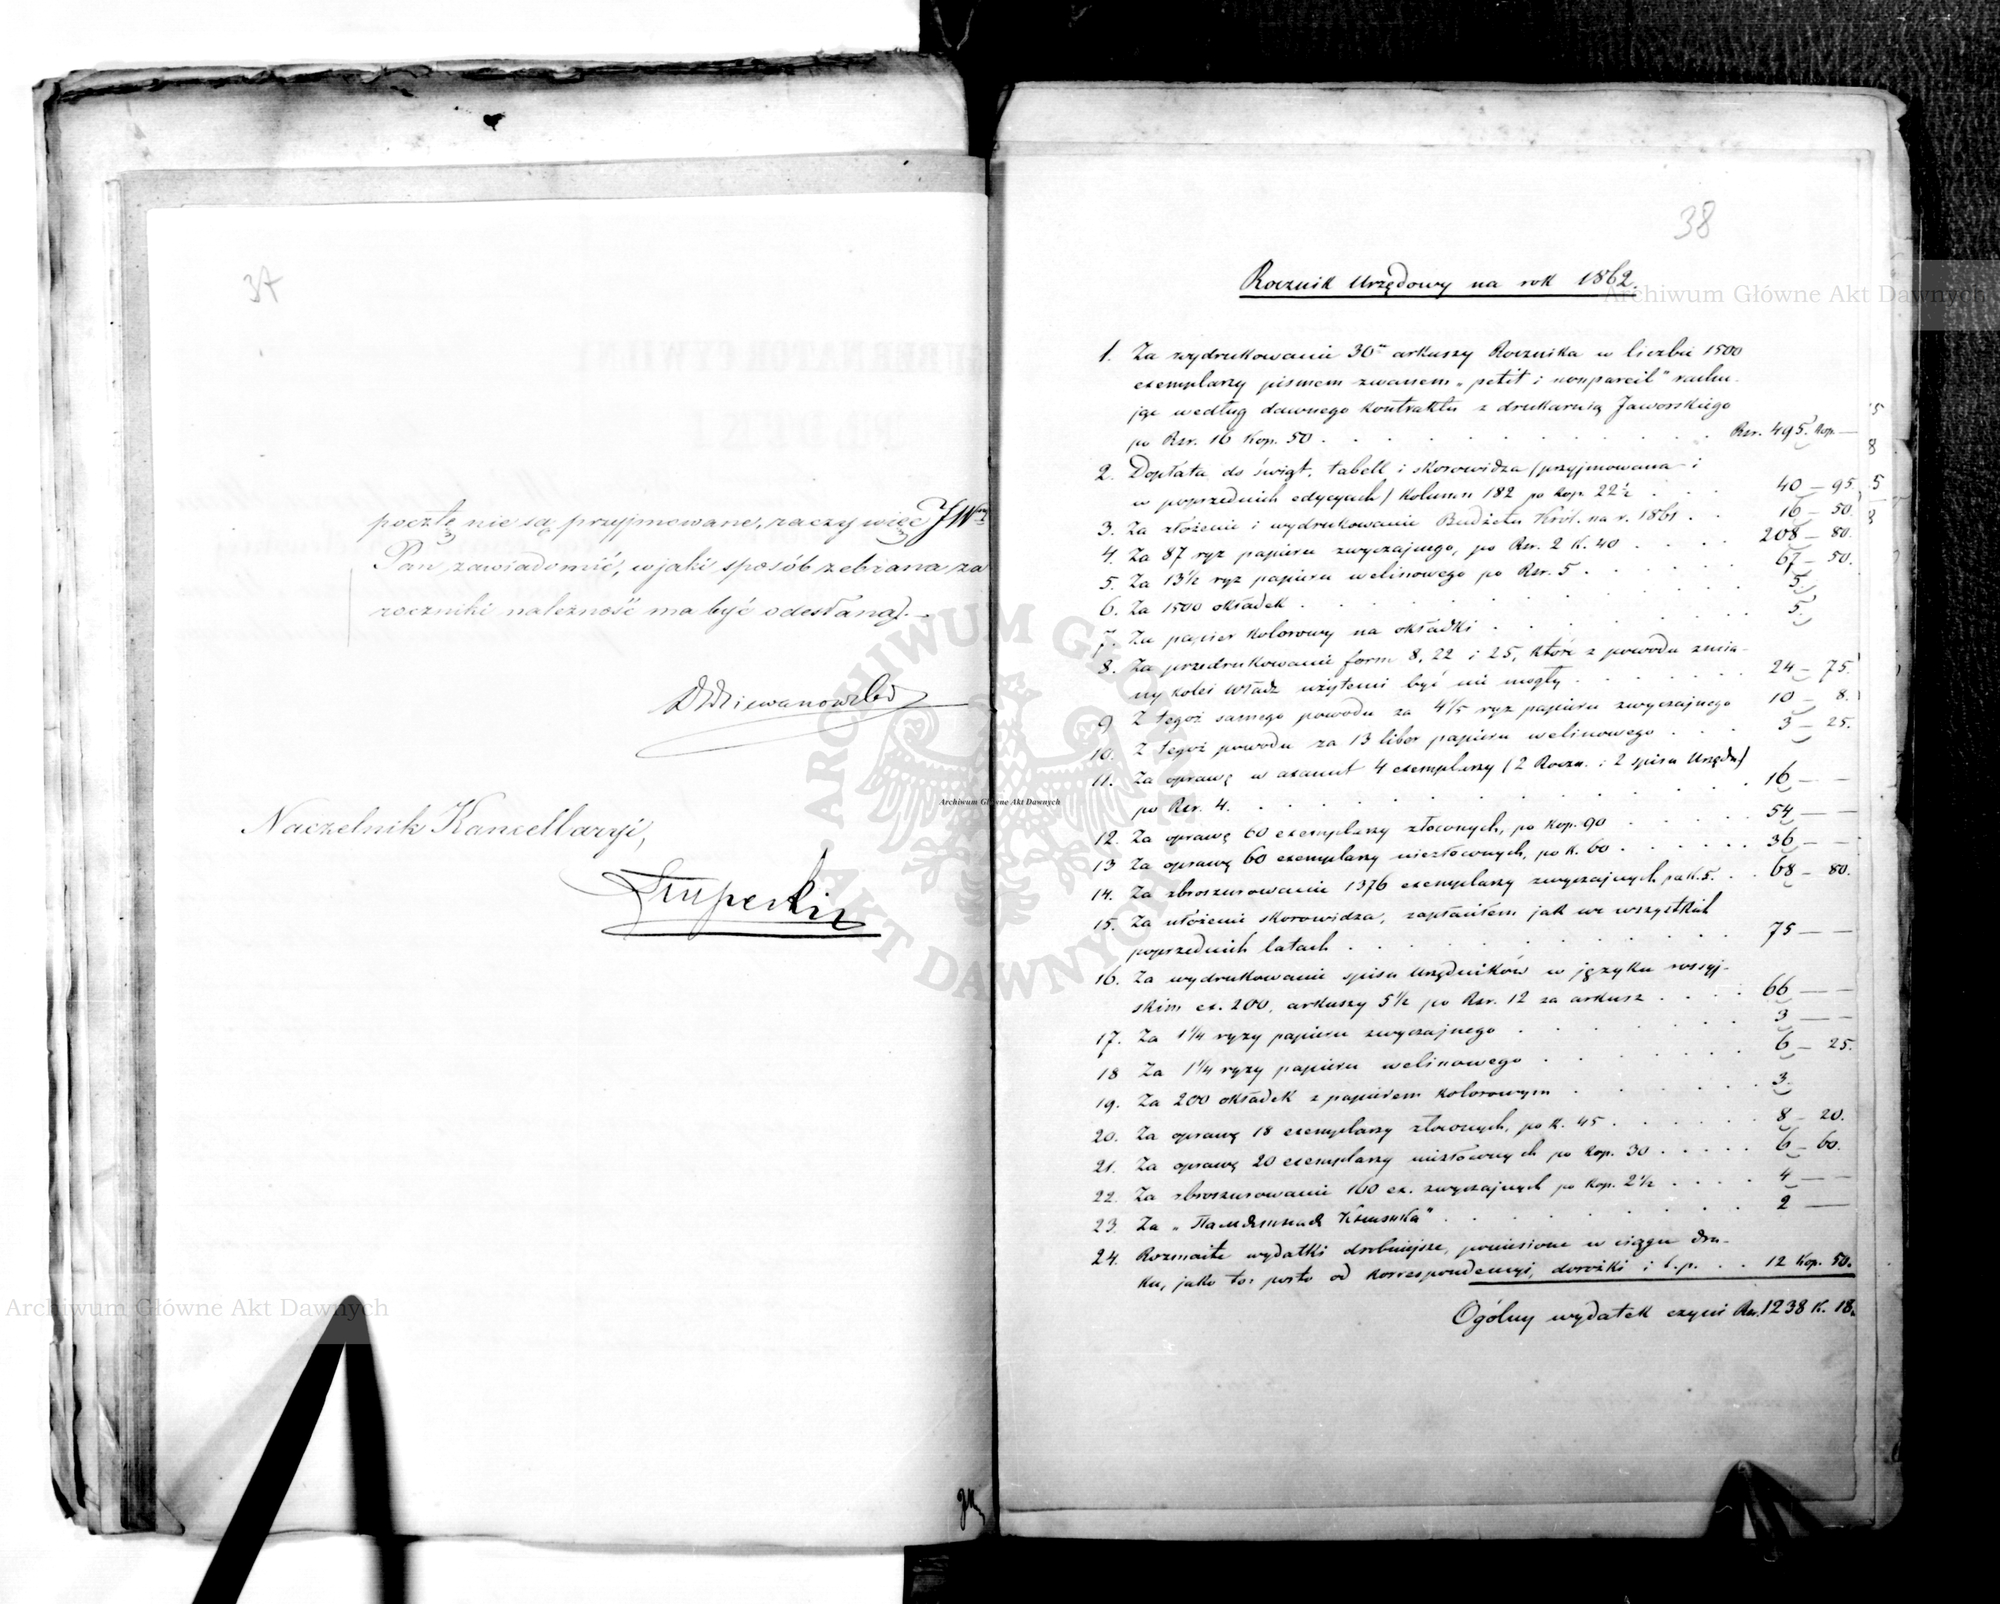 37
pocztę nie są przyjmowane, raczy więc JW
Pan zawiadomić, w jaki sposób zebrana za
roczniki należność ma być odesłaną.
Naczelnik Kancellaryi,
38
Rocznik Urzędowy na rok 1862.
1. Za wydrukowanie 30 arkuszy Rocznika w liczbie 1500
exemplarzy pismem zwanem „petit i nonpareil" rachu-
jąc według dawnego kontraktu z drukarnią Jaworskiego
po Rsr. 16 Kop. 50 . . . Rsr. 495. Kop. —
2. Dopłata do świąt, tabell i skorowidza /przyjmowana i
w poprzednich edycyach/ Kolumn 182 po Kop. 22½ . . . 40 — 95.
3. Za złożenie i wydrukowanie Budżetu Król. na r. 1861 . . 16 — 50.
4. Za 87 ryz papieru zwyczajnego, po Rsr. 2 K. 40 . . . 208 — 80.
5. Za 13½ ryz papieru welinowego po Rsr. 5 . . . 67 — 50.
6. Za 1500 okładek . . . 5.
7. Za papier kolorowy na okładki . . . 5.
8. Za przedrukowanie form 8, 22 i 25, które z powodu zmia-
ny kolei władz użytemi być nie mogły . . . 24 — 75.
9. Z tegoż samego powodu za 4⅕ ryz papieru zwyczajnego 10 — 8.
10. Z tegoż powodu za 13 liber papieru welinowego . . . 3 — 25.
11. Za oprawę w axamit 4 exemplarzy (2 Roczn. i 2 spisu Urzędn.)
po Rsr. 4. . . . 16 — —
12. Za oprawę 60 exemplarzy złoconych, po Kop. 90 . . . 54 — —
13 Za oprawę 60 exemplarzy niezłoconych, po K. 60 . . . 36 — —
14. Za zbroszurowanie 1376 exemplarzy zwyczajnych po K. 5. . . 68 — 80.
15. Za ułożenie skorowidza, zapłaciłem jak we wszystkich
poprzednich latach . . . 75 — —
16. Za wydrukowanie spisu Urzędników w języku rossyj-
skim ex. 200, arkuszy 5½ po Rsr. 12 za arkusz . . . 66 — —
17. Za 1¼ ryzy papieru zwyczajnego . . . 3 — —
18 Za 1¼ ryzy papieru welinowego . . . 6 — 25.
19. Za 200 okładek z papierem kolorowym . . . 3.
20. Za oprawę 18 exemplarzy złoconych, po K. 45 . . . 8 — 20.
21. Za oprawę 20 exemplarzy niezłoconych po Kop. 30 . . . 6 — 60.
22. Za zbroszurowanie 160 ex. zwyczajnych po Kop. 2½ . . . 4 — —
23. Za . . . 2 —
24. Rozmaite wydatki drobniejsze, poniesione w ciągu dru-
ku, jako to: porto od korrespondencyi, dorożki i t. p. . . 12 Kop. 50.
Ogólny wydatek czyni Rsr. 1238 K. 18.
Archiwum Główne Akt Dawnych
Archiwum Główne Akt Dawnych
Archiwum Główne Akt Dawnych
ARCHIWUM GŁÓWNE AKT DAWNYCH